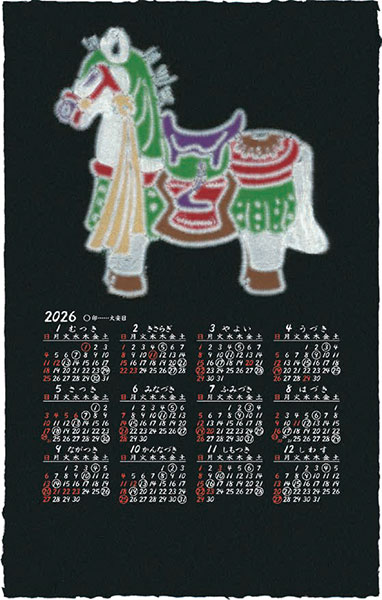 2026 ○印……大安日
1 むつき
日 月 火 水 木 金 土
1 2 3
4 5 6 7 8 9 10
11 12 13 14 15 16 17
18 19 20 21 22 23 24
25 26 27 28 29 30 31
2 きさらぎ
日 月 火 水 木 金 土
1 2 3 4 5 6 7
8 9 10 11 12 13 14
15 16 17 18 19 20 21
22 23 24 25 26 27 28
3 やよい
日 月 火 水 木 金 土
1 2 3 4 5 6 7
8 9 10 11 12 13 14
15 16 17 18 19 20 21
22 23 24 25 26 27 28
29 30 31
4 うづき
日 月 火 水 木 金 土
1 2 3 4
5 6 7 8 9 10 11
12 13 14 15 16 17 18
19 20 21 22 23 24 25
26 27 28 29 30
5 さつき
日 月 火 水 木 金 土
1 2
3 4 5 6 7 8 9
10 11 12 13 14 15 16
17 18 19 20 21 22 23
24/31 25 26 27 28 29 30
6 みなづき
日 月 火 水 木 金 土
1 2 3 4 5 6
7 8 9 10 11 12 13
14 15 16 17 18 19 20
21 22 23 24 25 26 27
28 29 30
7 ふみづき
日 月 火 水 木 金 土
1 2 3 4
5 6 7 8 9 10 11
12 13 14 15 16 17 18
19 20 21 22 23 24 25
26 27 28 29 30 31
8 はづき
日 月 火 水 木 金 土
1
2 3 4 5 6 7 8
9 10 11 12 13 14 15
16 17 18 19 20 21 22
23/30 24/31 25 26 27 28 29
9 ながつき
日 月 火 水 木 金 土
1 2 3 4 5
6 7 8 9 10 11 12
13 14 15 16 17 18 19
20 21 22 23 24 25 26
27 28 29 30
10 かんなづき
日 月 火 水 木 金 土
1 2 3
4 5 6 7 8 9 10
11 12 13 14 15 16 17
18 19 20 21 22 23 24
25 26 27 28 29 30 31
11 しもつき
日 月 火 水 木 金 土
1 2 3 4 5 6 7
8 9 10 11 12 13 14
15 16 17 18 19 20 21
22 23 24 25 26 27 28
29 30
12 しわす
日 月 火 水 木 金 土
1 2 3 4 5
6 7 8 9 10 11 12
13 14 15 16 17 18 19
20 21 22 23 24 25 26
27 28 29 30 31